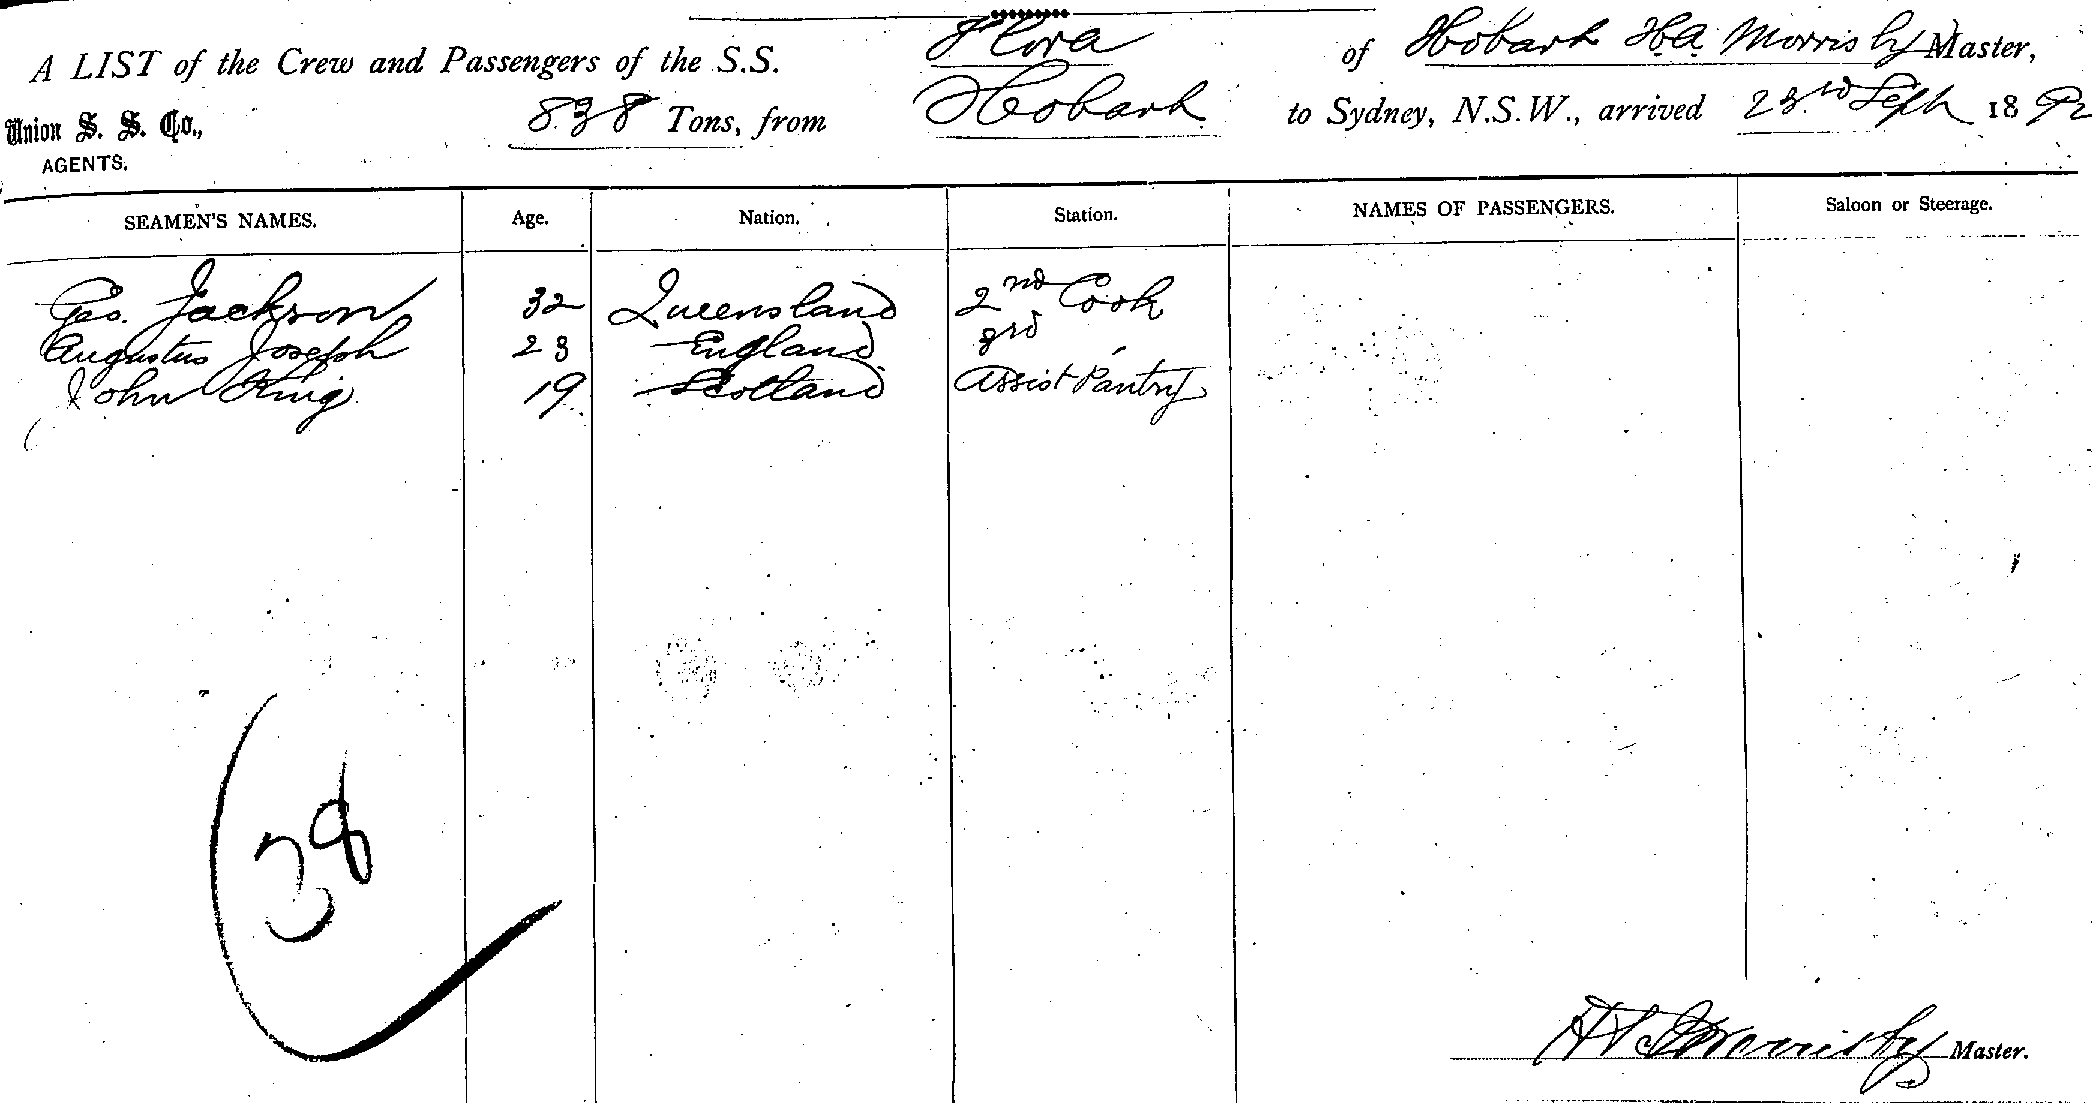 A LIST of the Crew and Passengers of the S.S. Flora of Hobart H.A. Morrisby Master,
Union S. S. Co., 838 Tons, from Hobart to Sydney, N.S.W., arrived 23rd Sept 1892
AGENTS.
SEAMEN'S NAMES. Age. Nation. Station. NAMES OF PASSENGERS. Saloon or Steerage.
Geo. Jackson 32 Queensland 2nd Cook
Augustus Joseph 23 England 3rd
John King 19 Scotland Assist Pantry
38
Morrisby Master.